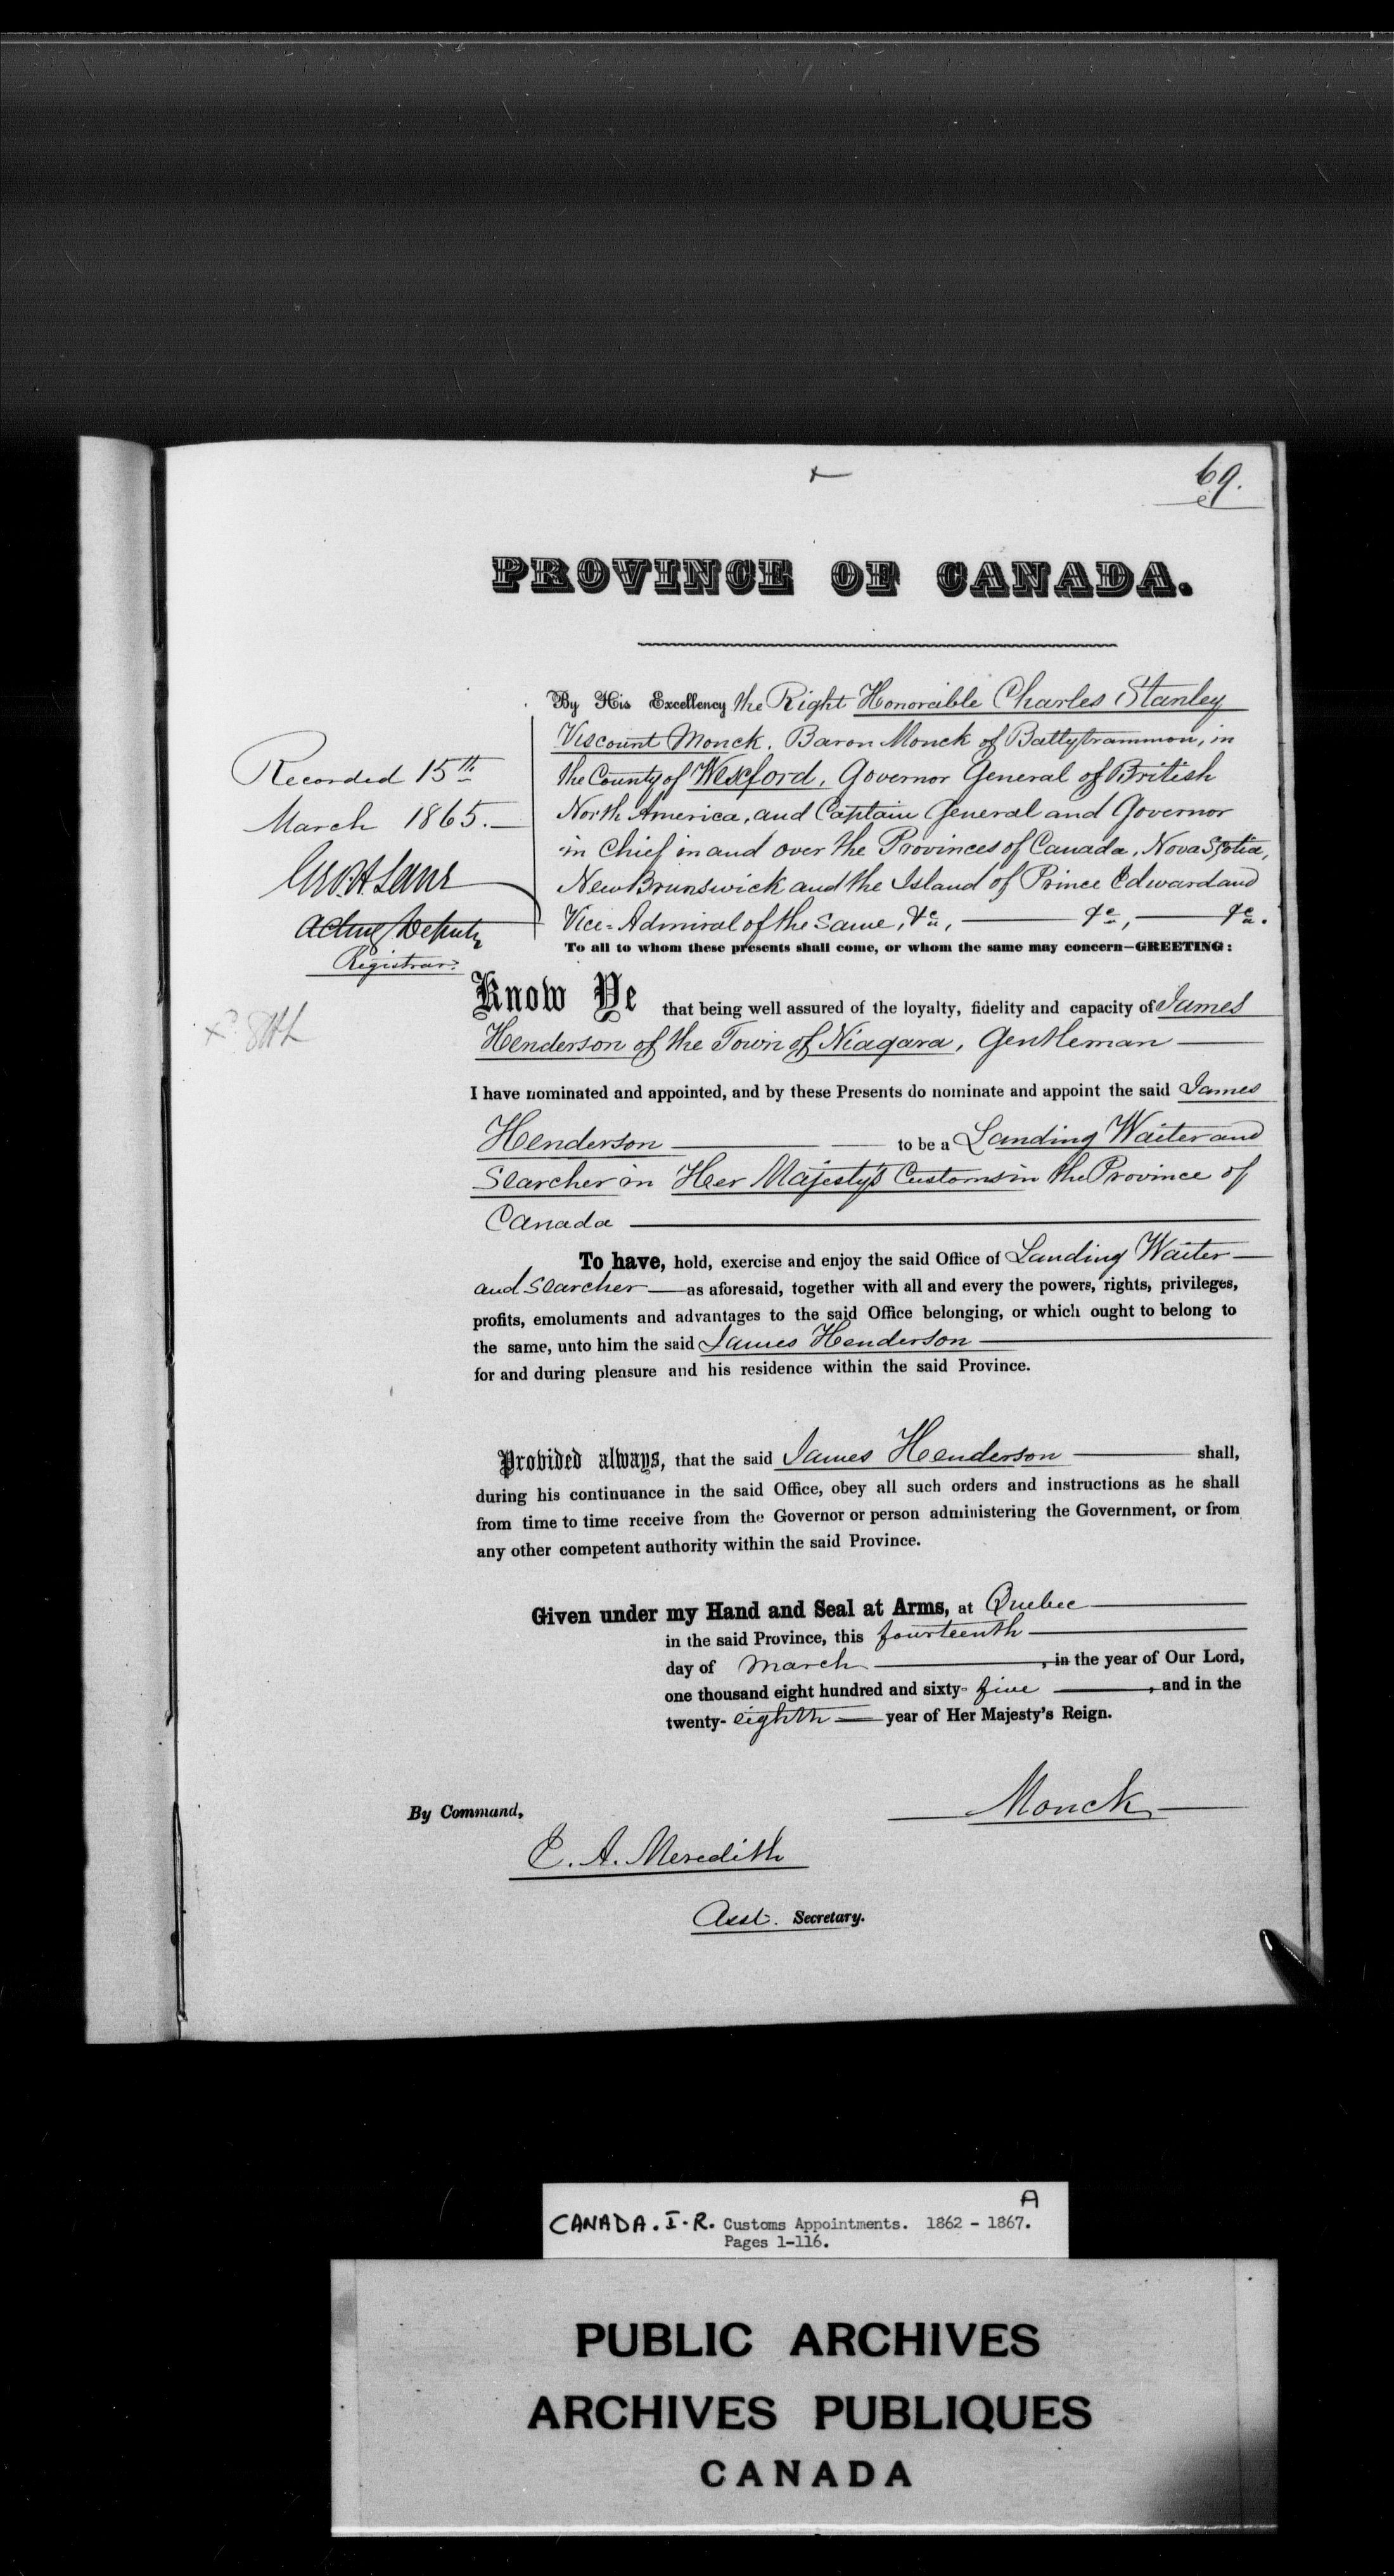 69.
PROVINCE OF CANADA.
By His Excellency the Right Honorable Charles Stanley
Viscount Monck, Baron Monck of Ballytrammon, in
the County of Wexford, Governor General of British
North America, and Captain General and Governor
in Chief in and over the Provinces of Canada, Nova Scotia,
New Brunswick and the Island of Prince Edward and
Vice-Admiral of the same, &c, &c, &c.
To all to whom these presents shall come, or whom the same may concern—GREETING:
Recorded 15th
March 1865.
Geo. H Lane
Acting Deputy
Registrar.
Know Ye that being well assured of the loyalty, fidelity and capacity of James
Henderson of the Town of Niagara, Gentleman
I have nominated and appointed, and by these Presents do nominate and appoint the said James
Henderson to be a Landing Waiter and
Searcher in Her Majesty's Customs in the Province of
Canada
To have, hold, exercise and enjoy the said Office of Landing Waiter
and Searcher as aforesaid, together with all and every the powers, rights, privileges,
profits, emoluments and advantages to the said Office belonging, or which ought to belong to
the same, unto him the said James Henderson
for and during pleasure and his residence within the said Province.
Provided always, that the said James Henderson shall,
during his continuance in the said Office, obey all such orders and instructions as he shall
from time to time receive from the Governor or person administering the Government, or from
any other competent authority within the said Province.
Given under my Hand and Seal at Arms, at Quebec
in the said Province, this fourteenth
day of March, in the year of Our Lord,
one thousand eight hundred and sixty-five, and in the
twenty-eighth year of Her Majesty's Reign.
Monck
By Command,
E. A. Meredith
Asst. Secretary.
A
CANADA. I-R. Customs Appointments. 1862 - 1867.
Pages 1-116.
PUBLIC ARCHIVES
ARCHIVES PUBLIQUES
CANADA